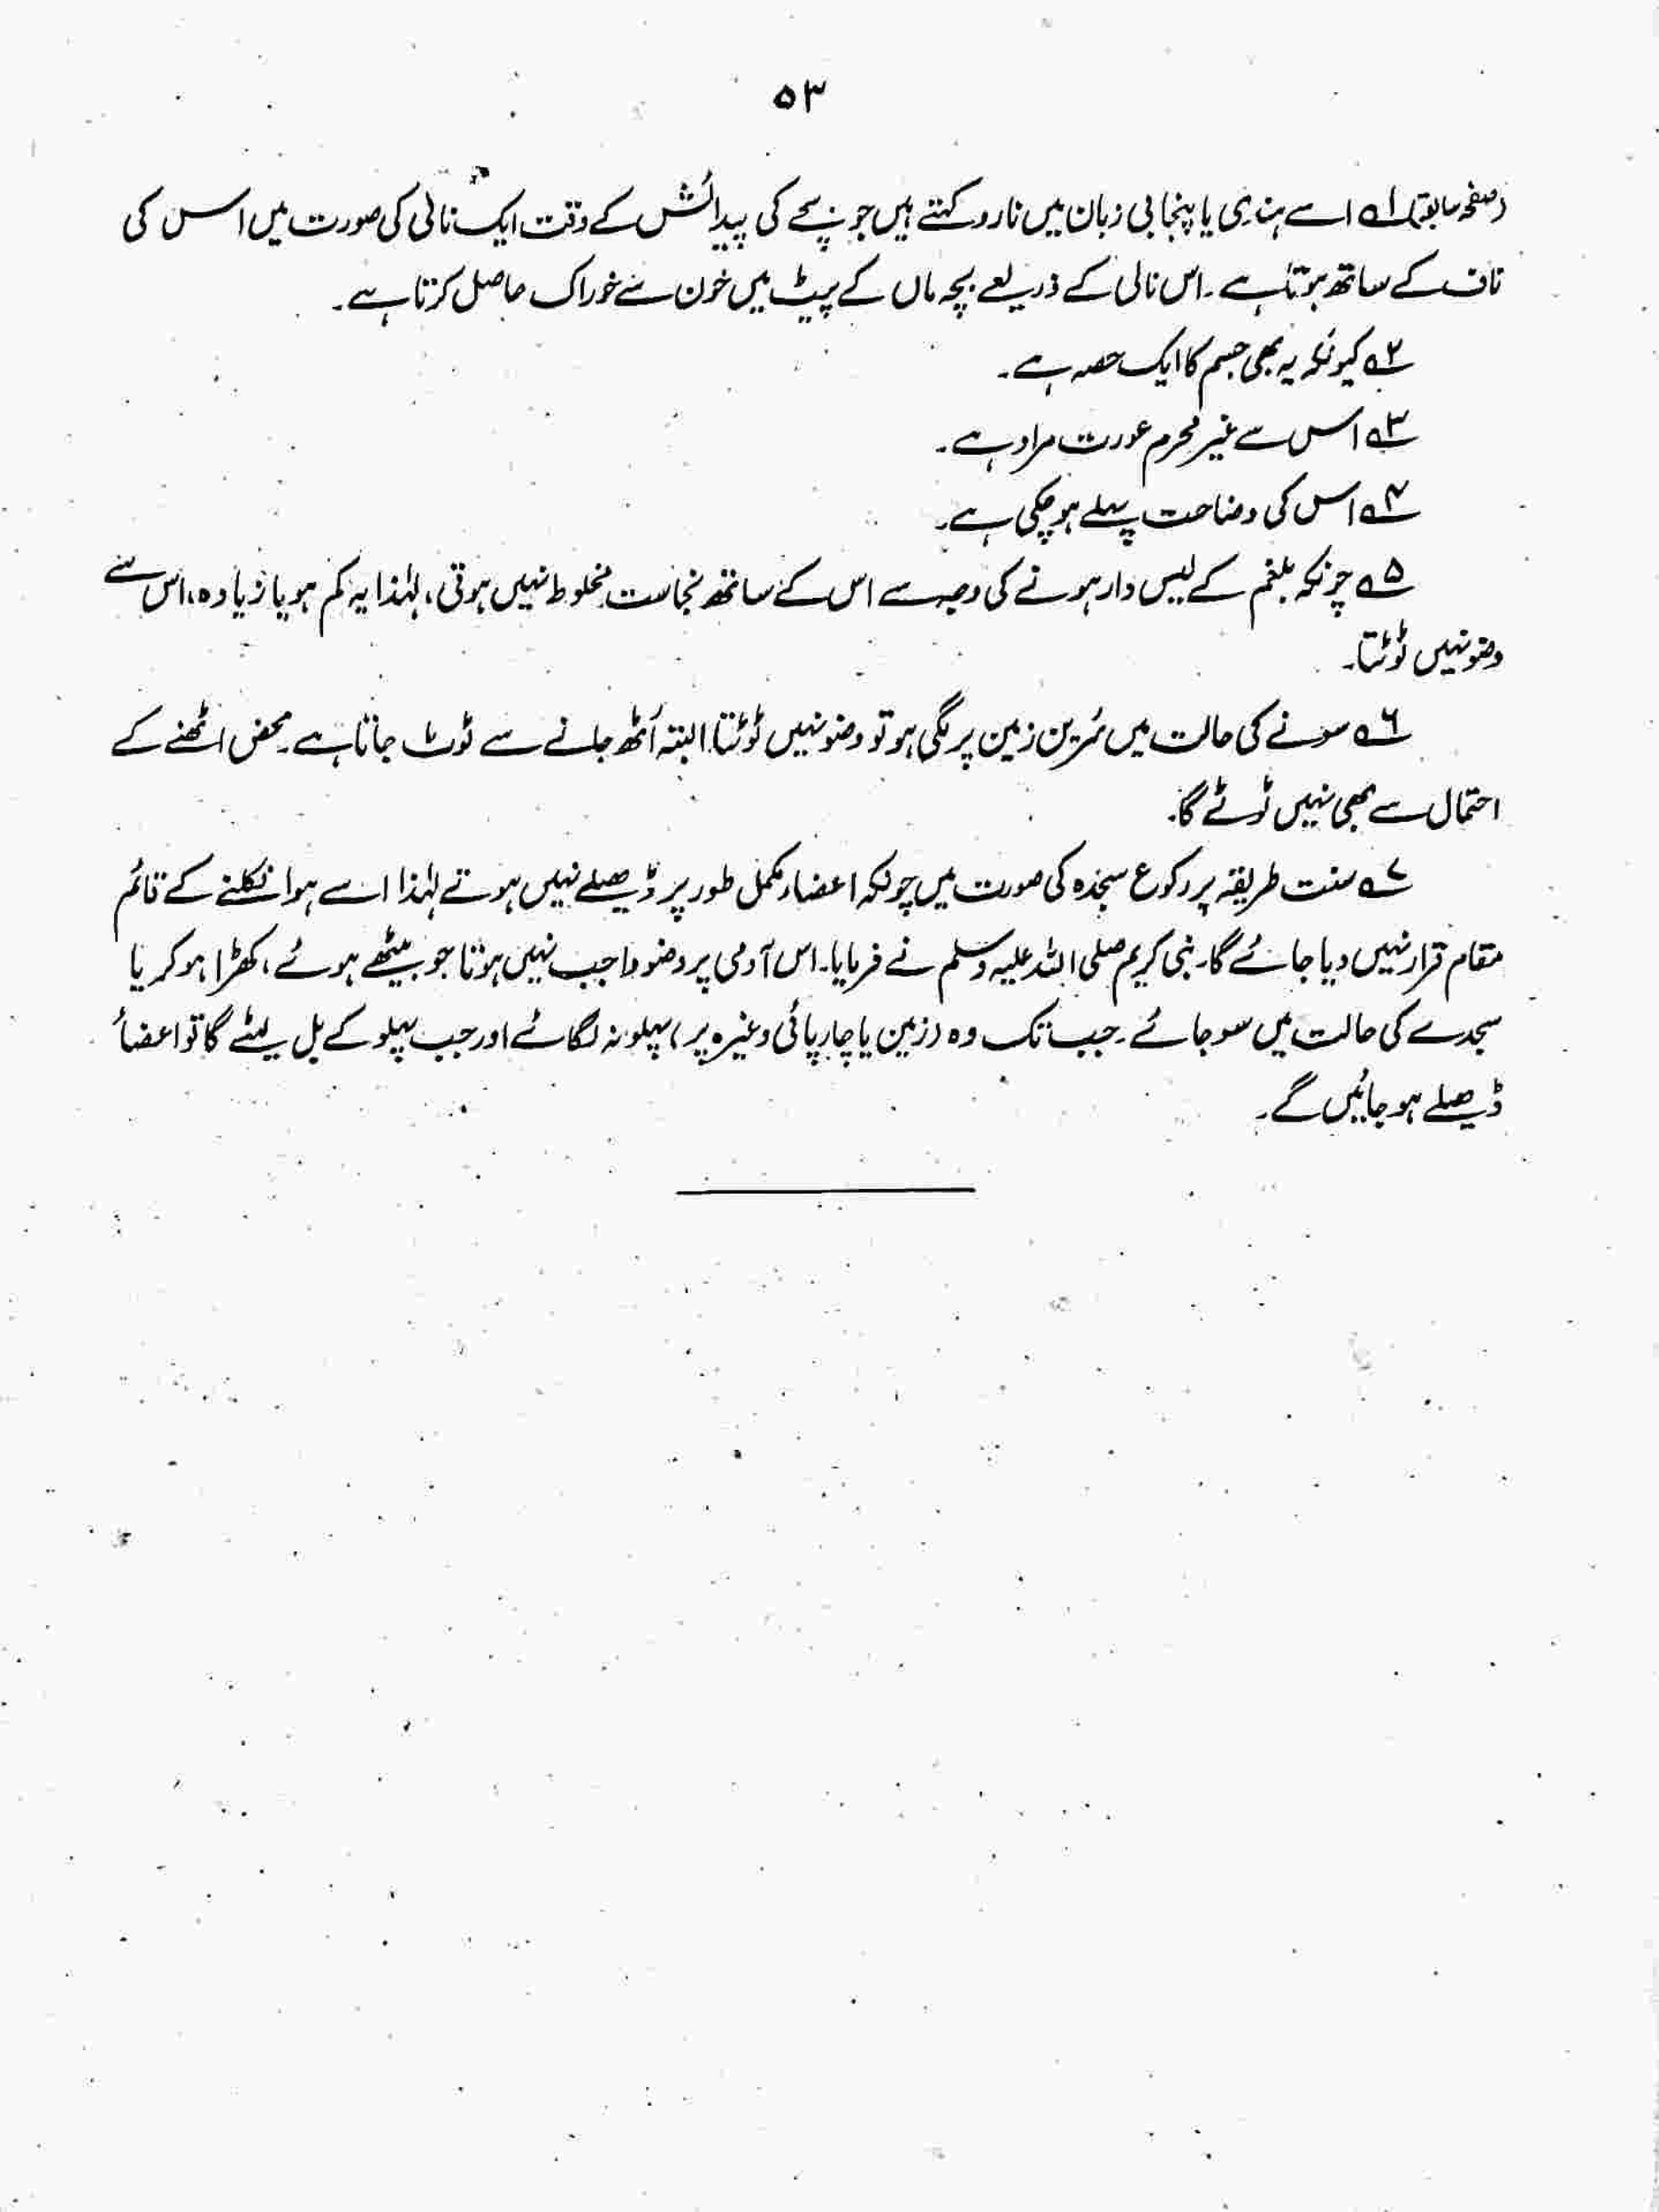 ۵۳
(صفحہ سابقہ) ۱؎ اسے ہندی یا پنجابی زبان میں نارو کہتے ہیں جو بچے کی پیدائش کے وقت ایک نالی کی صورت میں اس کی
ناف کے ساتھ ہوتا ہے۔ اس نالی کے ذریعے بچہ ماں کے پیٹ میں خون سے خوراک حاصل کرتا ہے۔
۲؎ کیونکہ یہ بھی جسم کا ایک حصہ ہے۔
۳؎ اس سے غیر محرم عورت مراد ہے۔
۴؎ اس کی وضاحت پہلے ہو چکی ہے۔
۵؎ چونکہ بلغم کے لیس دار ہونے کی وجہ سے اس کے ساتھ نجاست مخلوط نہیں ہوتی، لہٰذا یہ کم ہو یا زیادہ، اس سے
وضو نہیں ٹوٹتا۔
۶؎ سونے کی حالت میں سُرین زمین پر لگی ہو تو وضو نہیں ٹوٹتا البتہ اُٹھ جانے سے ٹوٹ جاتا ہے۔ محض اٹھنے کے
احتمال سے بھی نہیں ٹوٹے گا۔
۷؎ سنت طریقہ پر رکوع سجدہ کی صورت میں چونکہ اعضاء مکمل طور پر ڈھیلے نہیں ہوتے لہٰذا اسے ہوا نکلنے کے قائم
مقام قرار نہیں دیا جائے گا۔ نبی کریم صلی اللہ علیہ وسلم نے فرمایا۔ اس آدمی پر وضو واجب نہیں ہوتا جو بیٹھے ہوئے، کھڑا ہو کر یا
سجدے کی حالت میں سو جائے۔ جب تک وہ (زمین یا چارپائی وغیرہ پر) پہلو نہ لگائے اور جب پہلو کے بل لیٹے گا تو اعضأ
ڈھیلے ہو جائیں گے۔